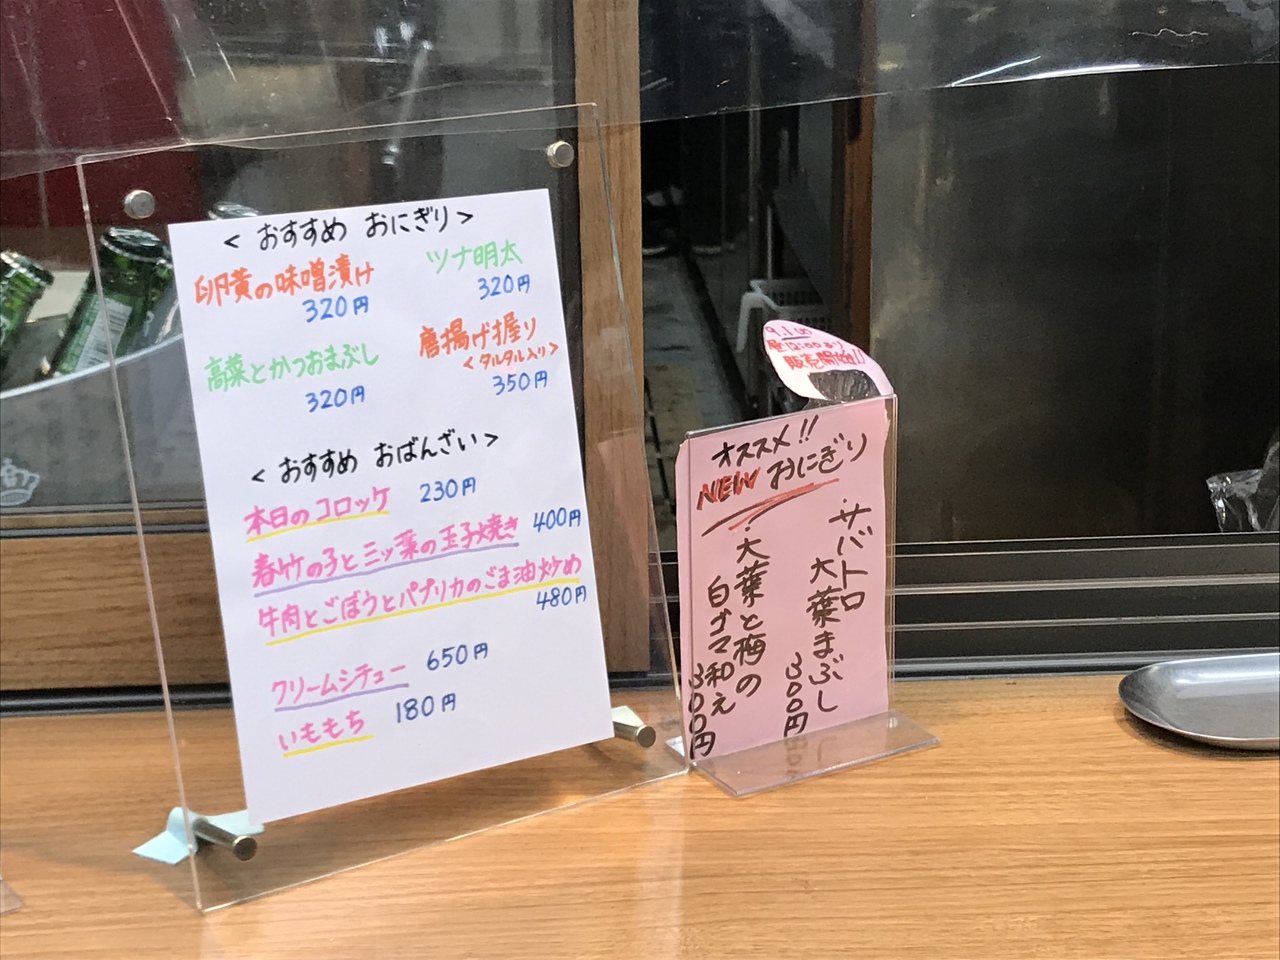 < おすすめ おにぎり >
卵黄の味噌漬け
320円
ツナ明太
320円
高菜とかつおまぶし
320円
唐揚げ握り
<タルタル入り>
350円
< おすすめ おばんざい >
本日のコロッケ 230円
春竹の子と三ッ葉の玉子焼き 400円
牛肉とごぼうとパプリカのごま油炒め
480円
クリームシチュー 650円
いももち 180円
販売開始!!
オススメ!!
NEW おにぎり
・サバトロ
大葉まぶし
300円
・大葉と梅の
白ゴマ和え
300円